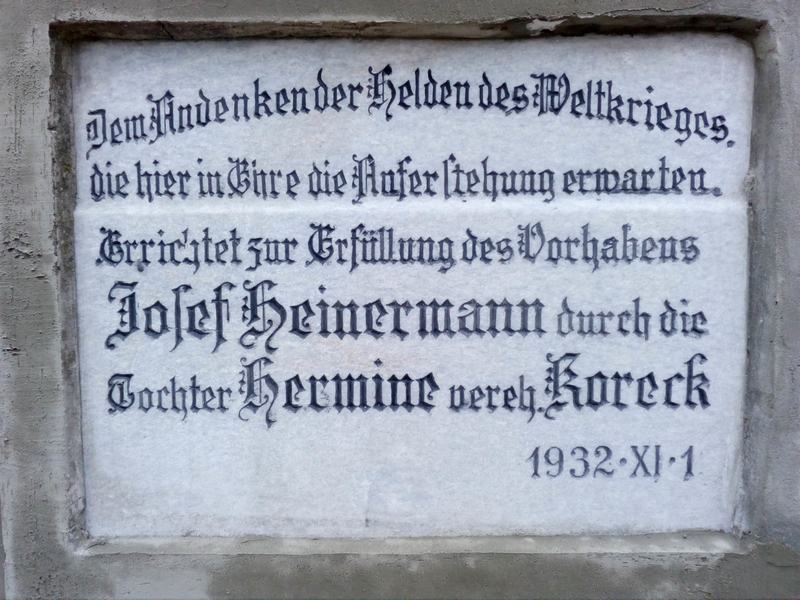 Dem Andenken der Helden des Weltkrieges.
die hier in Ehre die Auferstehung erwarten.
Errichtet zur Erfüllung des Vorhabens
Josef Heinermann durch die
Tochter Hermine vereh. Koreck
1932·XI·1